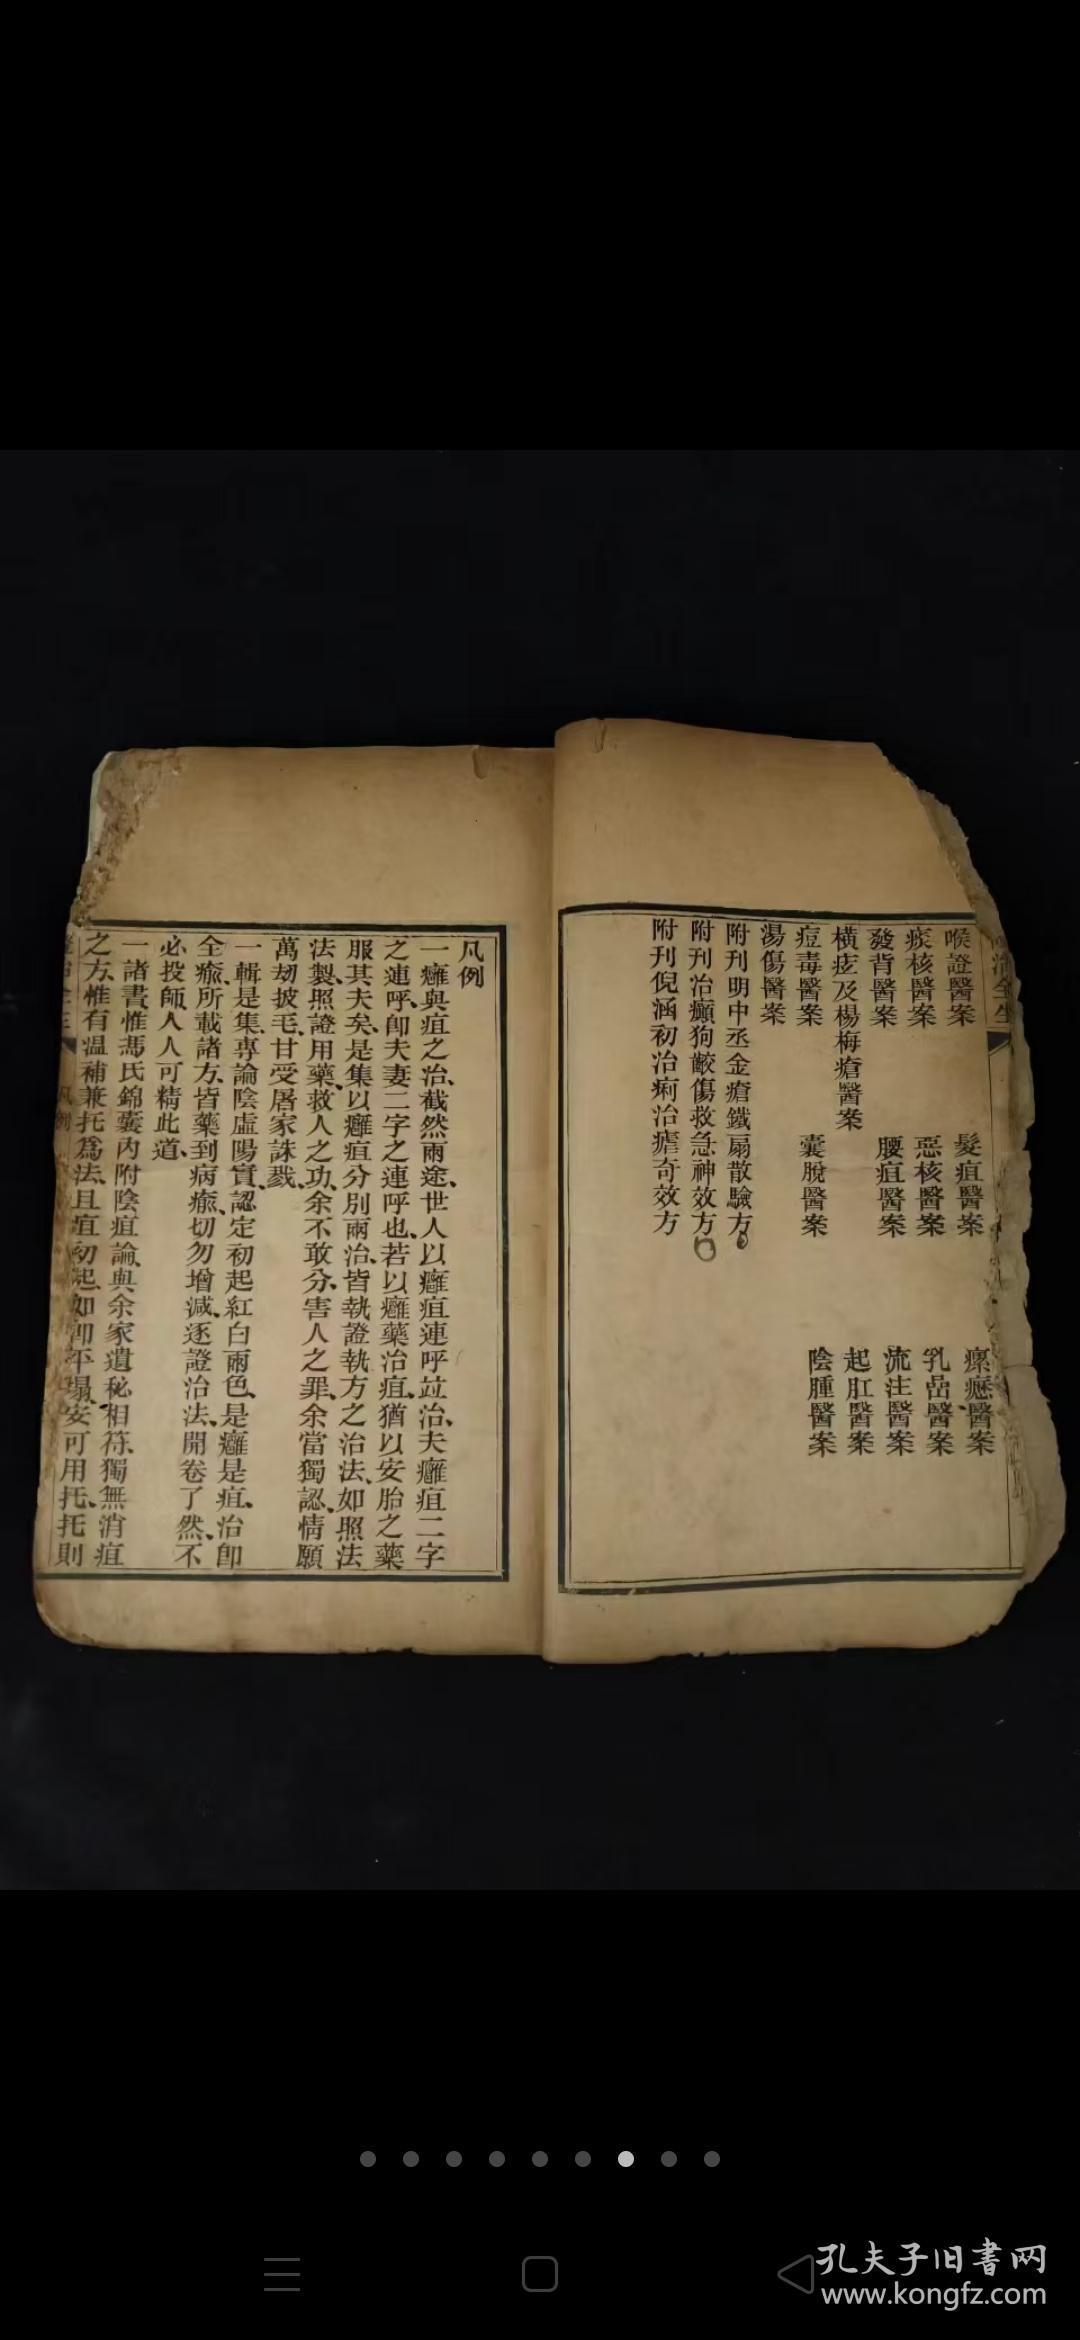 喉證醫案　髮疽醫案　瘰癧醫案
痰核醫案　惡核醫案　乳喦醫案
發背醫案　腰疽醫案　流注醫案
橫痃及楊梅瘡醫案　起肛醫案
痘毒醫案　囊脫醫案　陰腫醫案
湯傷醫案
附刊明中丞金瘡鐵扇散驗方
附刊治癲狗齩傷救急神效方
附刊倪涵初治痢治瘧奇效方
凡例
一癰與疽之治、截然兩途、世人以癰疽連呼竝治、夫癰疽二字
之連呼、卽夫妻二字之連呼也、若以癰藥治疽、猶以安胎之藥
服其夫矣、是集以癰疽分別兩治、皆執證執方之治法、如照法
法製、照證用藥、救人之功、余不敢分、害人之罪、余當獨認、情願
萬刼披毛、甘受屠家誅戮、
一輯是集、專論陰虛陽實、認定初起紅白兩色、是癰是疽、治卽
全瘉、所載諸方、皆藥到病瘉、切勿增減、逐證治法、開卷了然、不
必投師、人人可精此道、
一諸書惟馮氏錦囊內附陰疽論、與余家遺秘相符、獨無消疽
之方、惟有温補兼托爲法、且疽初起、如卽平塌、安可用托、托則
凡例
孔夫子旧書网
www.kongfz.com